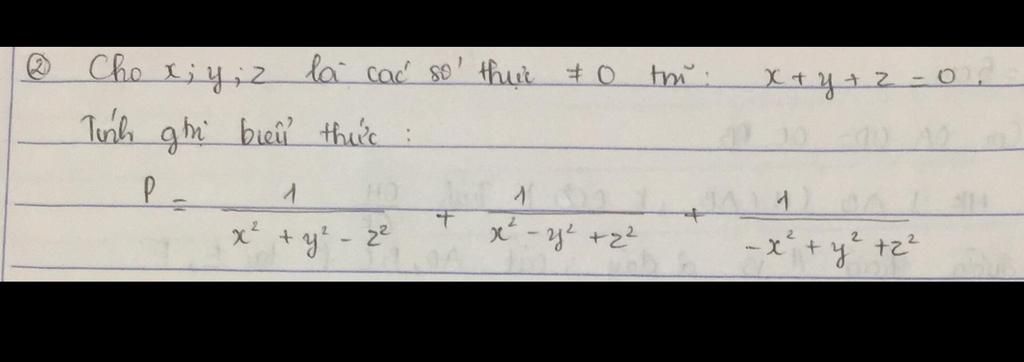 ② Cho x; y; z là các số thực ≠ 0 tmĩ: x + y + z = 0.
Tính gtri biểu thức:
P = 1/(x² + y² - z²) + 1/(x² - y² + z²) + 1/(-x² + y² + z²)